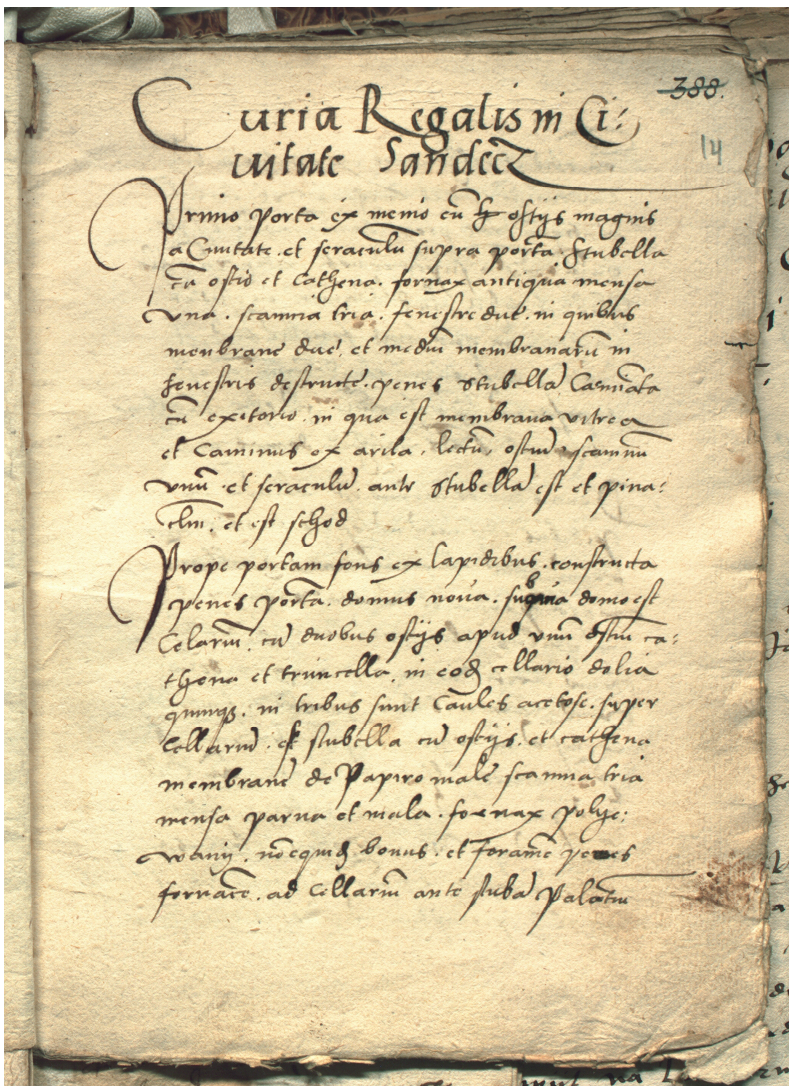 388.
14
Curia Regalis in Ci:
uitate Sandecz
Primo porta ex menio cū ostijs magnis
a Ciuitate. et seraculū supra portā. Stubella
cū ostio et Cathena. fornax antiqua mensa
vna. scamna tria. fenestre due. in quibus
menbrane due, et mediū membranarū in
fenestris destructe. penes Stubellā Camīata
cū exitorio. in qua est membrana vitrea
et Caminus ex arila, lectū, ostiū, scamnū
vnū. et seraculū. ante Stubellā est et pina:
clm. et est schod
Prope portam fons ex lapidibus. constructa
penes portā. domus noua. sub qua domo est
Celariū. cū duobus ostijs apud vnū ostiū ca:
thena et truncella. in eod cellario dolia
quinqz. in tribus sunt Caules acetose. super
Cellariū. est stubella cū ostijs. et cathena
membrane de Papiro male scamna tria
mensa parua et mala. fornax polye:
wanij. nō equid bonus. et foramē penes
fornacē. ad Cellariū ante stubā Palatiū